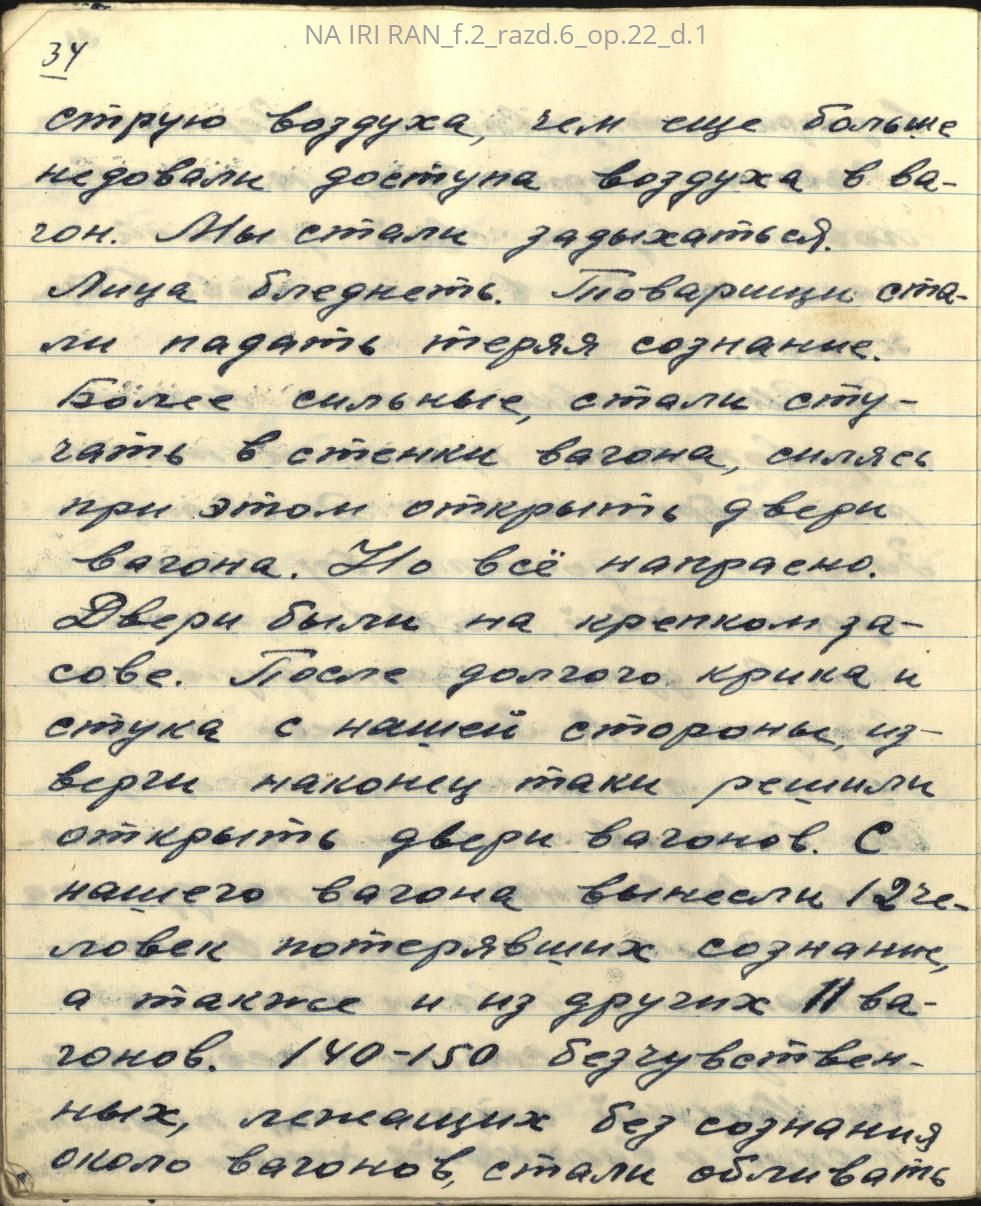 NA IRI RAN_f.2_razd.6_op.22_d.1
34
струю воздуха, чем еще больше
недовали доступа воздуха в ва-
гон. Мы стали задыхаться.
Лица бледнеть. Товарищи ста-
ли падать теряя сознание.
Более сильные, стали сту-
чать в стенки вагона, силясь
при этом открыть двери
вагона. Но всё напрасно.
Двери были на крепком за-
сове. После долгого крика и
стука с нашей стороны, из-
верги наконец таки решили
открыть двери вагонов. С
нашего вагона вынесли 12 че-
ловек потерявших сознание,
а также и из других 11 ва-
гонов. 140-150 безчувствен-
ных, лежащих без сознания
около вагонов, стали обливать